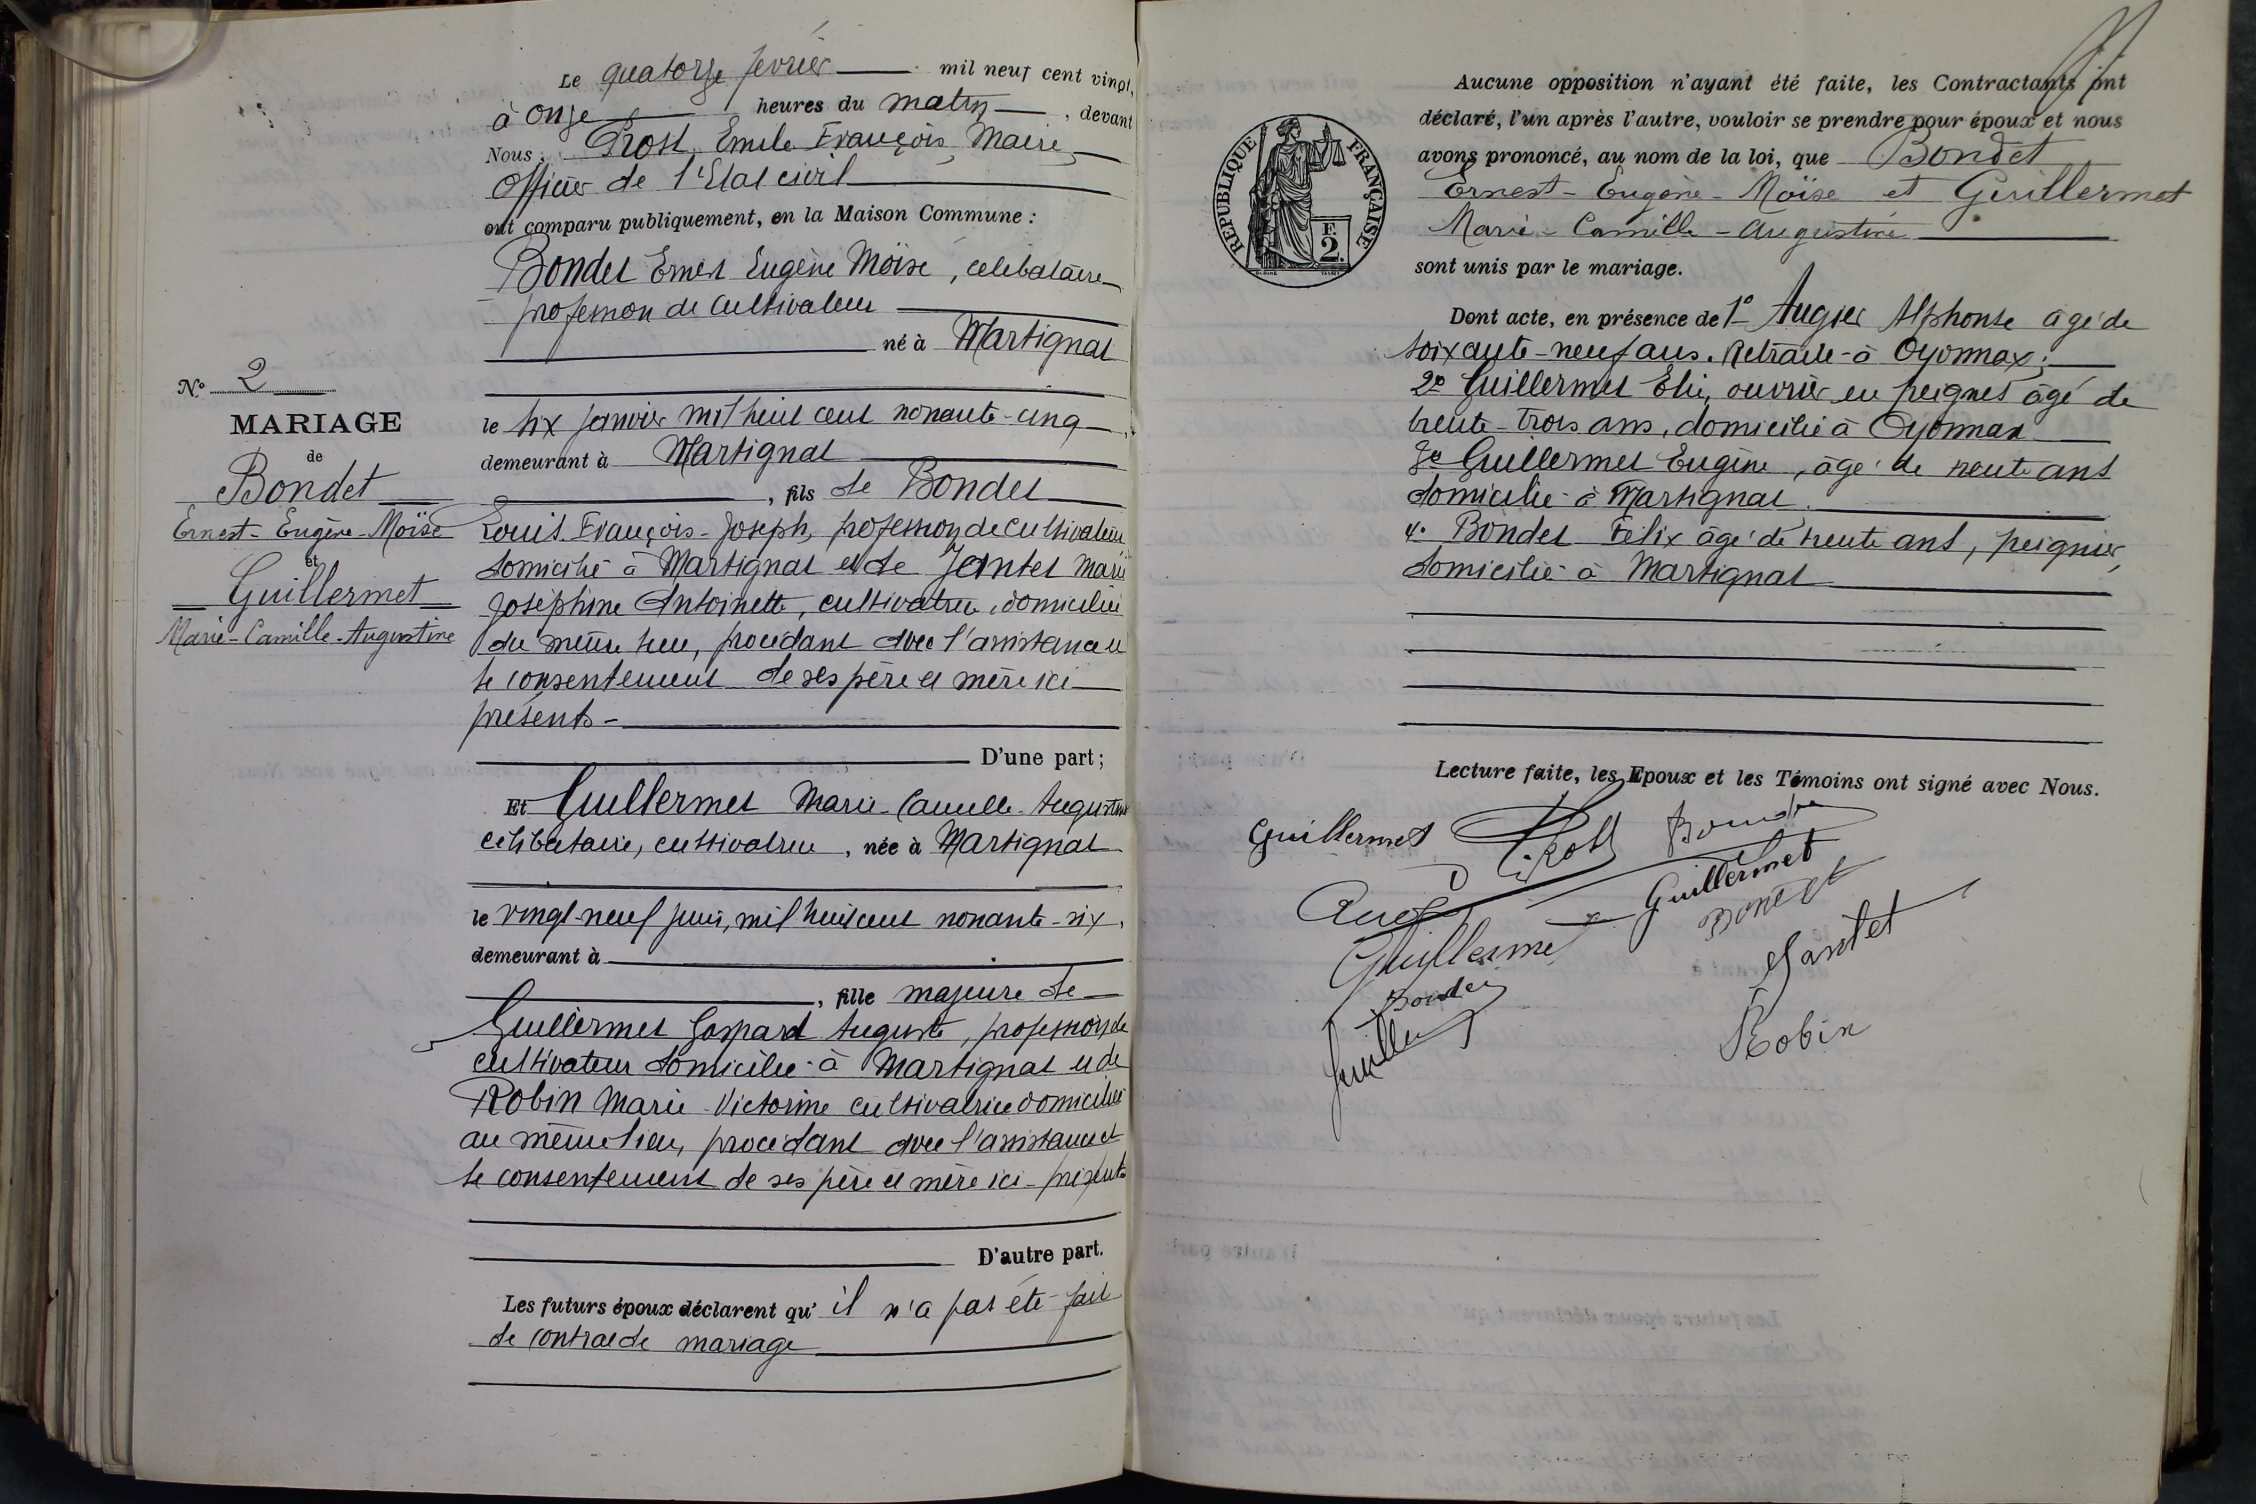 Le quatorze février mil neuf cent vingt,
à onze heures du matin, devant
Nous, Prost Emile François, Maire,
Officier de l'Etat civil
ont comparu publiquement, en la Maison Commune :
Bondet Ernest Eugène Moïse, célibataire
profession de cultivateur
né à Martignat
le six janvier mil huit cent nonante-cinq,
demeurant à Martignat
, fils de Bondet
Louis-François-Joseph, profession de cultivateur
domicilié à Martignat et de Jantet Marie
Joséphine Antoinette, cultivatrice, domiciliée
du même lieu, procédant avec l'assistance et
le consentement de ses père et mère ici
présents -
D'une part ;
N° 2
MARIAGE
de
Bondet
Ernest-Eugène-Moïse
et
Guillermet
Marie-Camille-Augustine
Et Guillermet Marie-Camille-Augustine
célibataire, cultivatrice, née à Martignat
le vingt-neuf juin, mil huit cent nonante-six,
demeurant à
, fille majeure de
Guillermet Gaspard Auguste, profession de
cultivateur domicilié à Martignat et de
Robin Marie-Victorine cultivatrice domiciliée
au même lieu, procédant avec l'assistance et
le consentement de ses père et mère ici-présents
D'autre part.
Les futurs époux déclarent qu'il n'a pas été fait
de contrat de mariage
RÉPUBLIQUE FRANÇAISE
F.
2.
Aucune opposition n'ayant été faite, les Contractants ont
déclaré, l'un après l'autre, vouloir se prendre pour époux et nous
avons prononcé, au nom de la loi, que Bondet
Ernest-Eugène-Moïse et Guillermet
Marie-Camille-Augustine
sont unis par le mariage.
Dont acte, en présence de 1° Augier Alphonse âgé de
soixante-neuf ans. Retraité à Oyonnax ;
2° Guillermet Elie, ouvrier en peignes âgé de
trente-trois ans, domicilié à Oyonnax
3° Guillermet Eugène, âgé de trente ans
domicilié à Martignat.
4° Bondet Félix âgé de trente ans, peignier,
domicilié à Martignat
Lecture faite, les Epoux et les Témoins ont signé avec Nous.
Guillermet Prost Bondet
Guillermet
Bondet
Guillermet
Jantet
Bondet
Robin